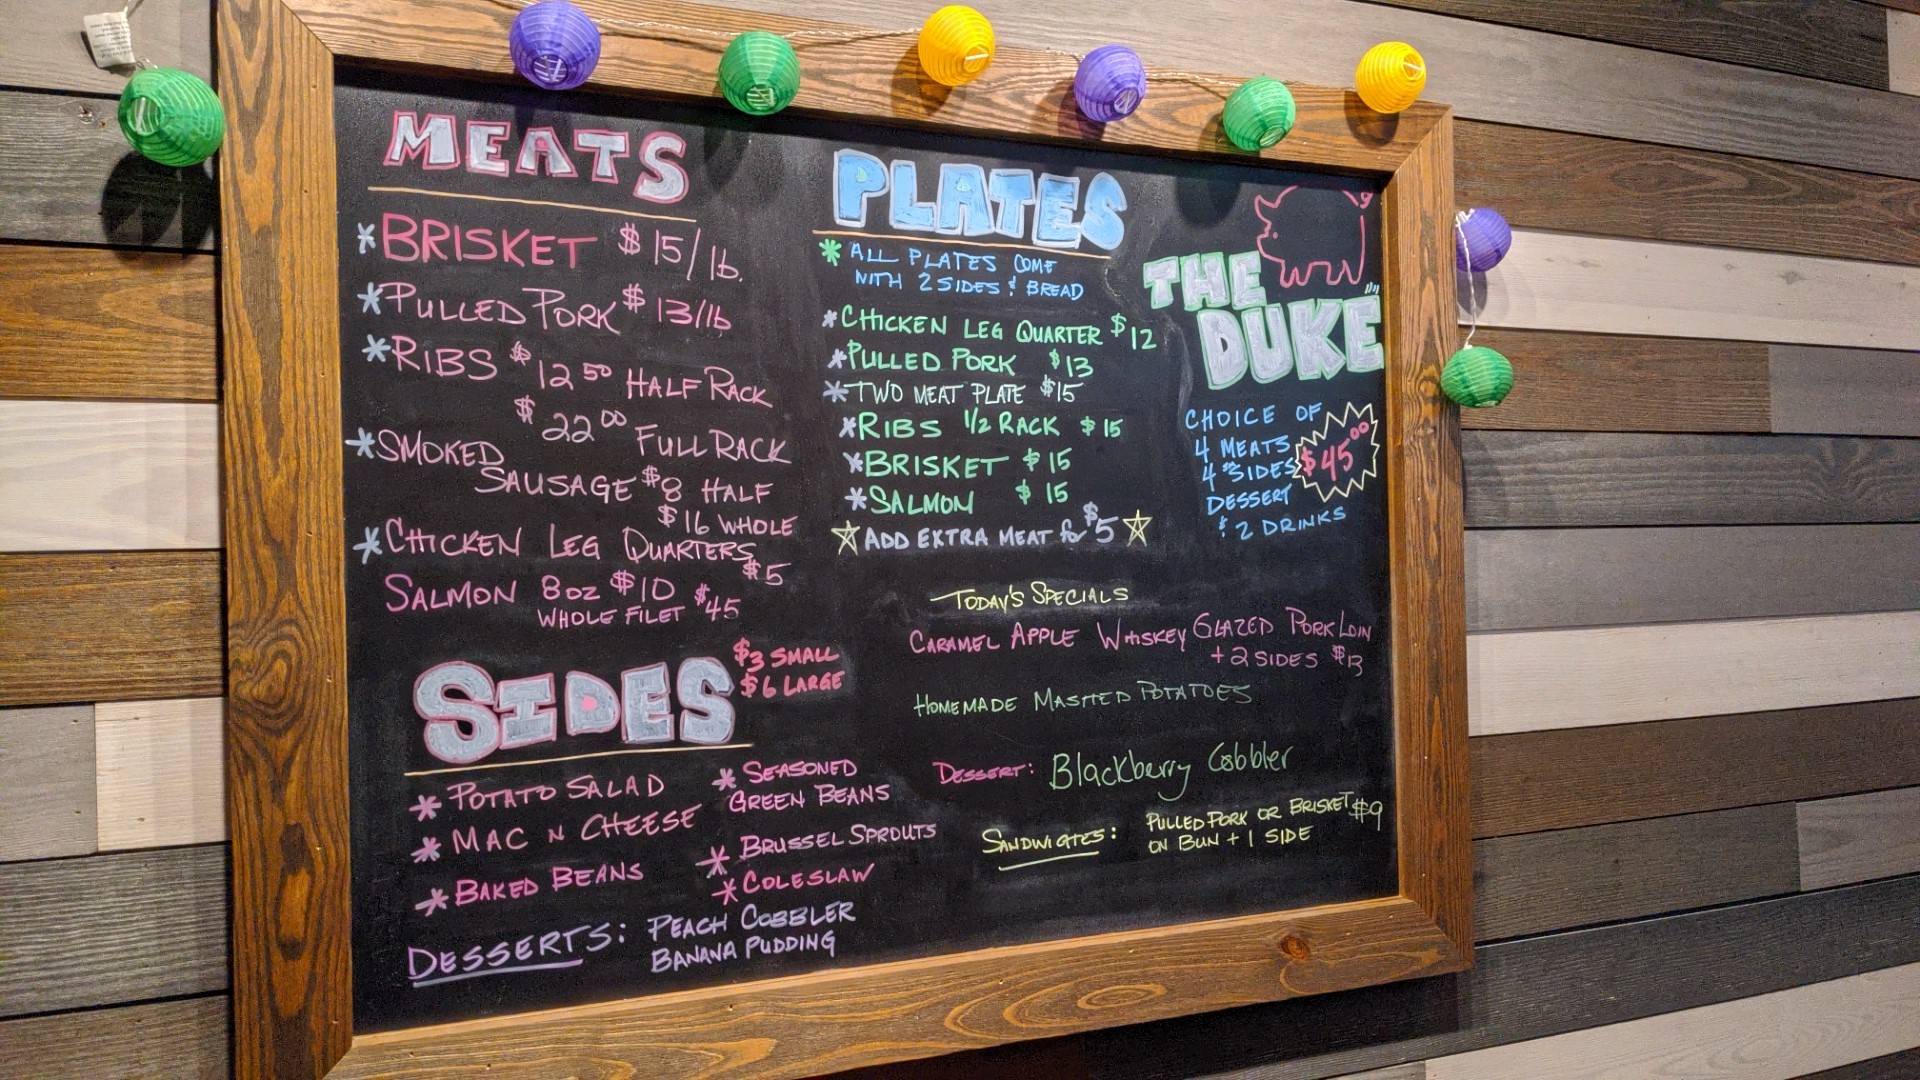 MEATS
*BRISKET $15/lb.
*PULLED PORK $13/lb
*RIBS $12 50 HALF RACK
$22 00 FULL RACK
*SMOKED
SAUSAGE $8 HALF
$16 WHOLE
*CHICKEN LEG QUARTERS
$5
SALMON 8oz $10
WHOLE FILET $45
SIDES
$3 SMALL
$6 LARGE
*POTATO SALAD
*MAC N CHEESE
*BAKED BEANS
*SEASONED
GREEN BEANS
*BRUSSEL SPROUTS
*COLESLAW
DESSERTS: PEACH COBBLER
BANANA PUDDING
PLATES
*ALL PLATES COME
WITH 2 SIDES & BREAD
*CHICKEN LEG QUARTER $12
*PULLED PORK $13
*TWO MEAT PLATE $15
*RIBS 1/2 RACK $15
*BRISKET $15
*SALMON $15
☆ADD EXTRA MEAT for $5☆
THE
"DUKE"
CHOICE OF
4 MEATS
4 SIDES
DESSERT
& 2 DRINKS
$45 00
TODAY'S SPECIALS
CARAMEL APPLE WHISKEY GLAZED PORK LOIN
+ 2 SIDES $13
HOMEMADE MASHED POTATOES
DESSERT: Blackberry Cobbler
SANDWICHES: PULLED PORK OR BRISKET $9
ON BUN + 1 SIDE